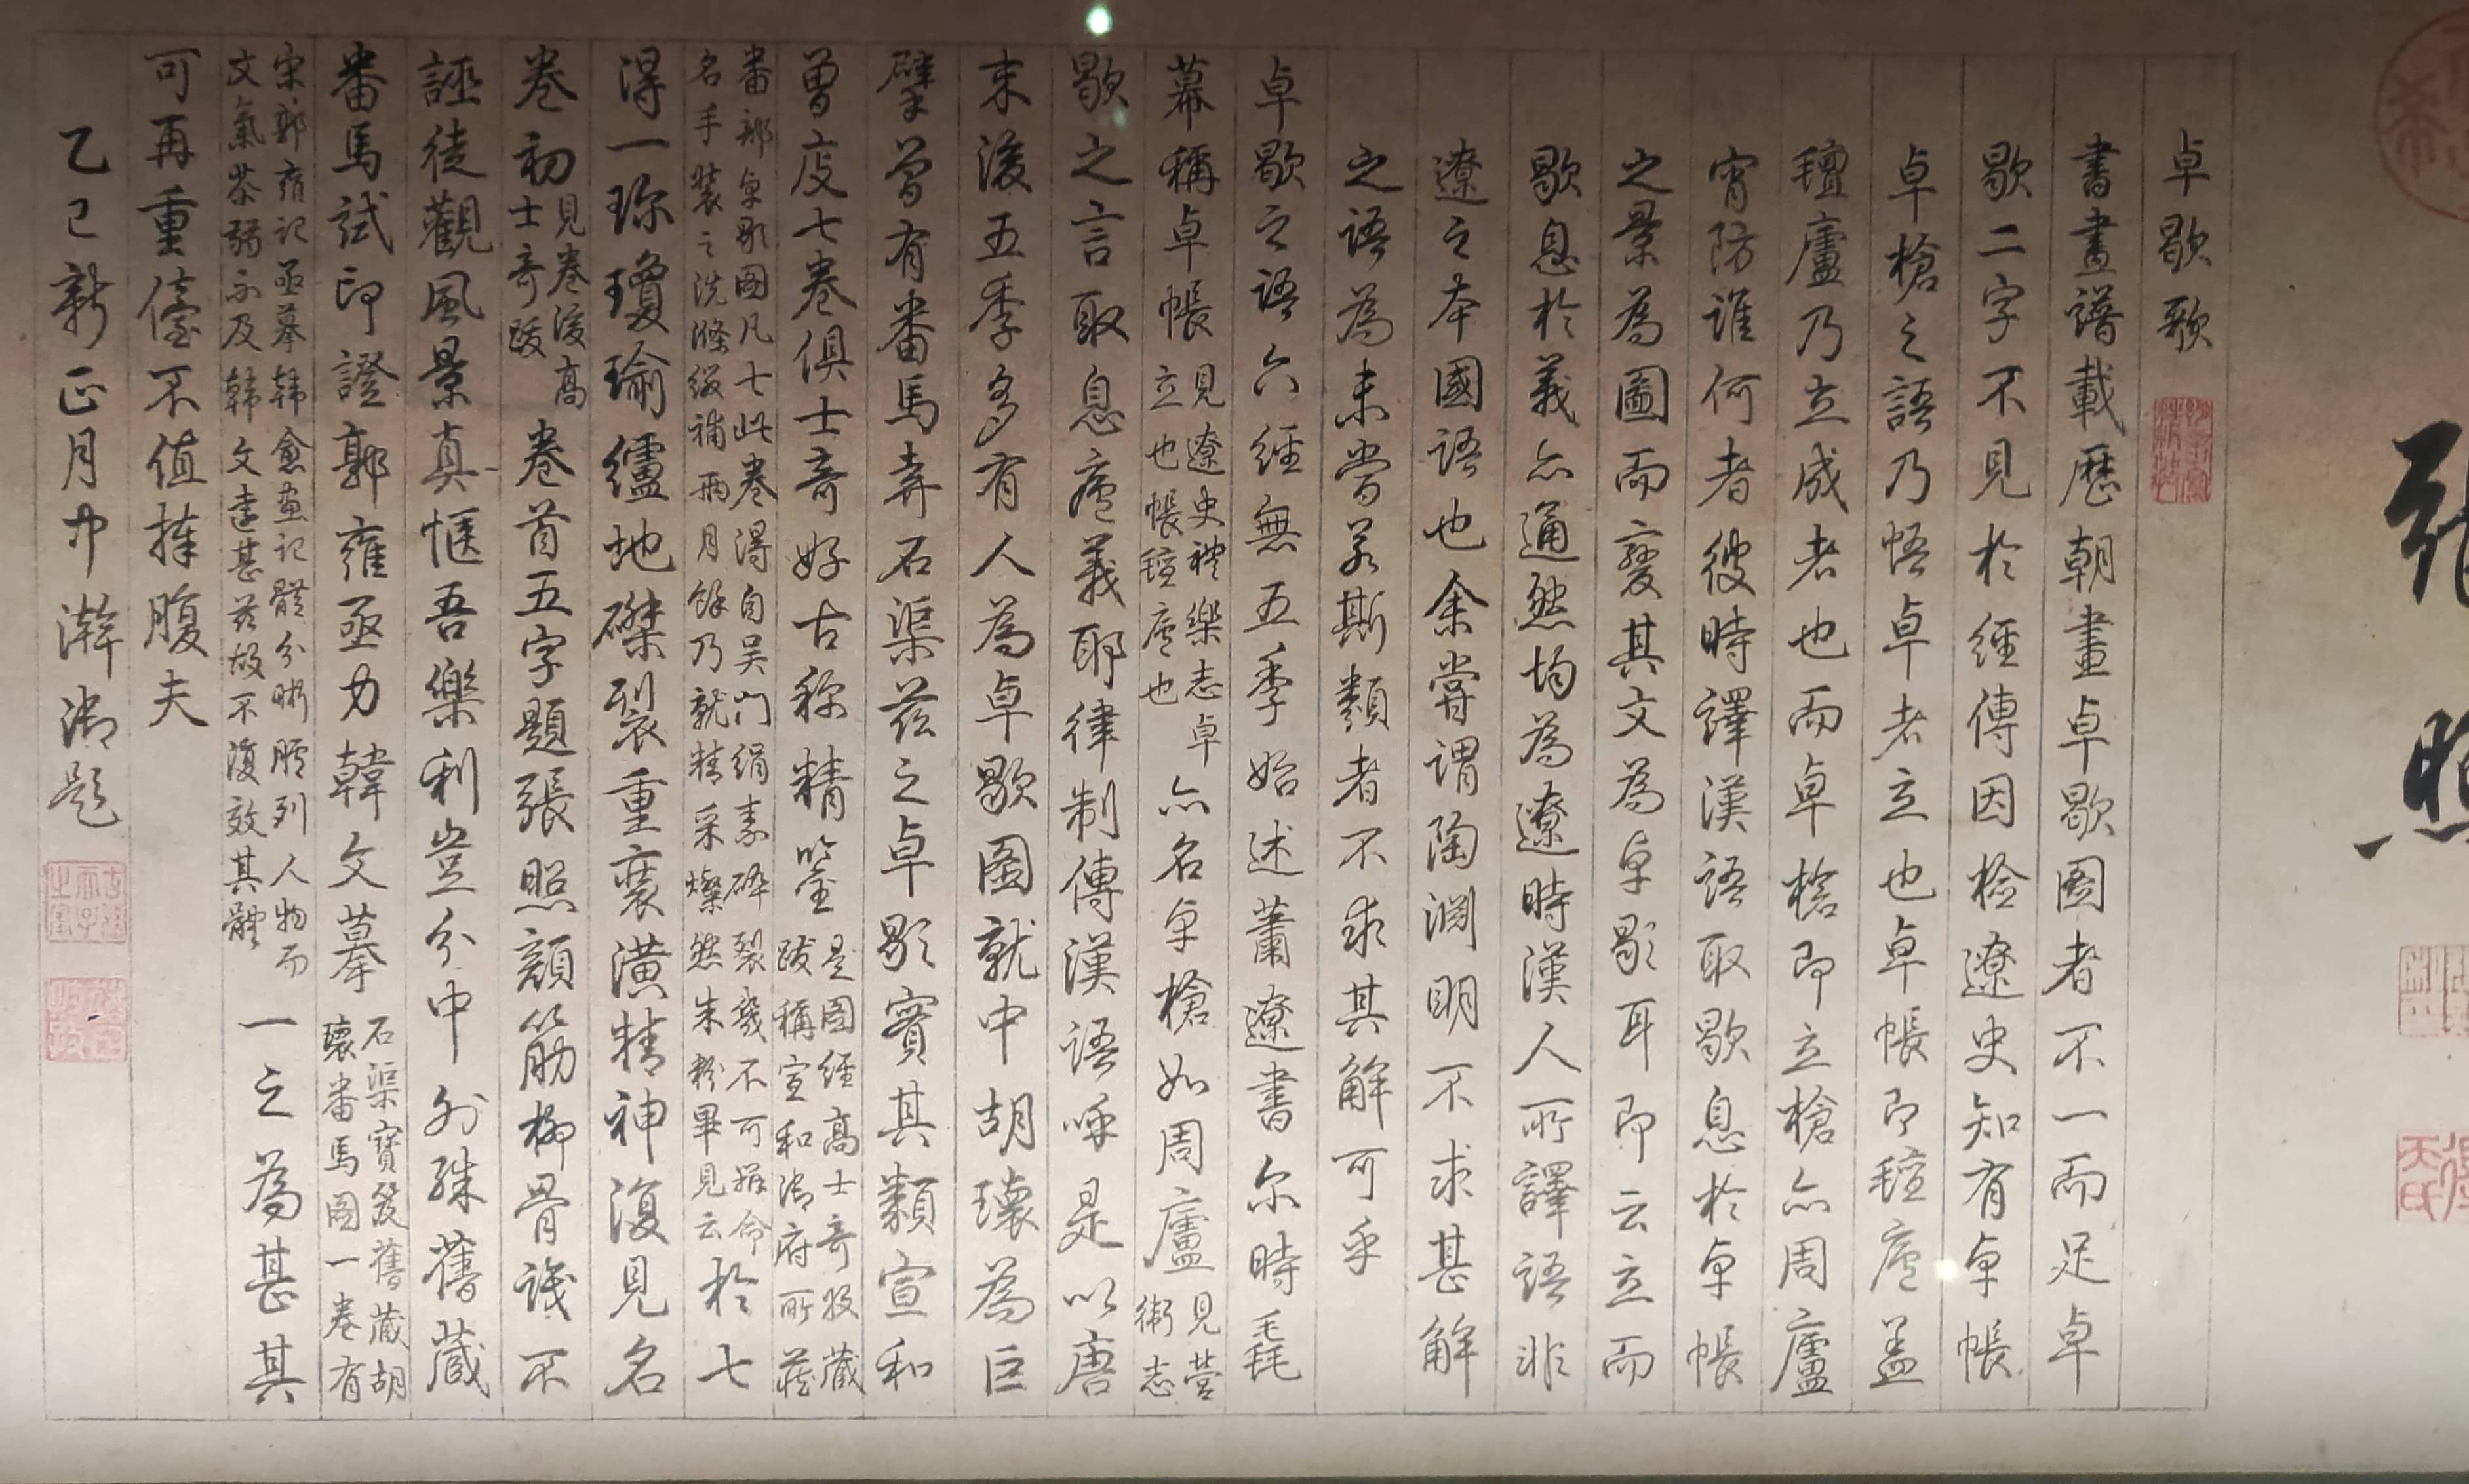 卓歇歌
書畫譜載歷朝畫卓歇圖者不一而足卓
歇二字不見於經傳因檢遼史知有卓帳
卓槍之語乃悟卓者立也卓帳即氊廬蓋
氊廬乃立成者也而卓槍即立槍亦周廬
宵防誰何者彼時譯漢語取歇息於卓帳
之景為圖而變其文為卓歇耳即云立而
歇息於義亦通然均為遼時漢人所譯語非
遼之本國語也余嘗謂陶淵明不求甚解
之語為未嘗若斯類者不求其解可乎
卓歇之語六經無五季始述蕭遼書尔時毳
幕稱卓帳
見遼史禮樂志卓
立也帳氊廬也
亦名卓槍如周廬
見營
衛志
歇之言取息廬義耶律制傳漢語呼是以唐
末後五季多有人為卓歇圖就中胡瓌為巨
擘曾有番馬弆石渠茲之卓歇實其類宣和
曾庋七卷俱士奇好古称精鑒
是圖經高士奇收藏
跋稱宣和御府所藏
番部卓歇圖凡七此卷得自吳門絹素碎裂幾不可
名手裝之洗滌綴補兩月餘乃就精采燦然朱粉畢見云
於七
得一珎瓊瑜纑地磔裂重裏潢精神復見名
卷初
見卷後高
士奇跋
卷首五字題張照顏筋柳骨誠不
誣徒觀風景真愜吾樂利豈分中外殊舊藏
番馬試印證郭雍亟力韓文摹
石渠寶笈舊藏胡
瓌番馬圖一卷有
宋郭雍記亟摹韓愈画記體分晰臚列人物而
文氣茶弱不及韓文遠甚茲故不復效其體
一之為甚其
可再重儓不值捧腹夫
乙巳新正月中澣御題
張照